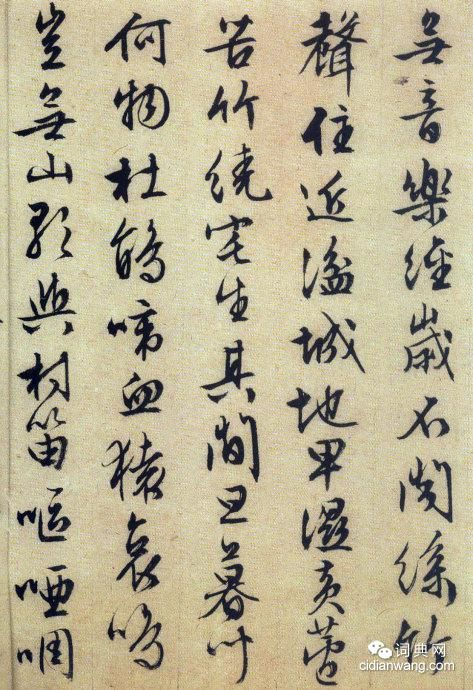 無音樂經歲不聞絲竹
聲住近湓城地卑濕黄蘆
苦竹繞宅生其間旦暮聞
何物杜鵑啼血猿哀鳴
豈無山歌與村笛嘔啞啁
词典网
cidianwang.com